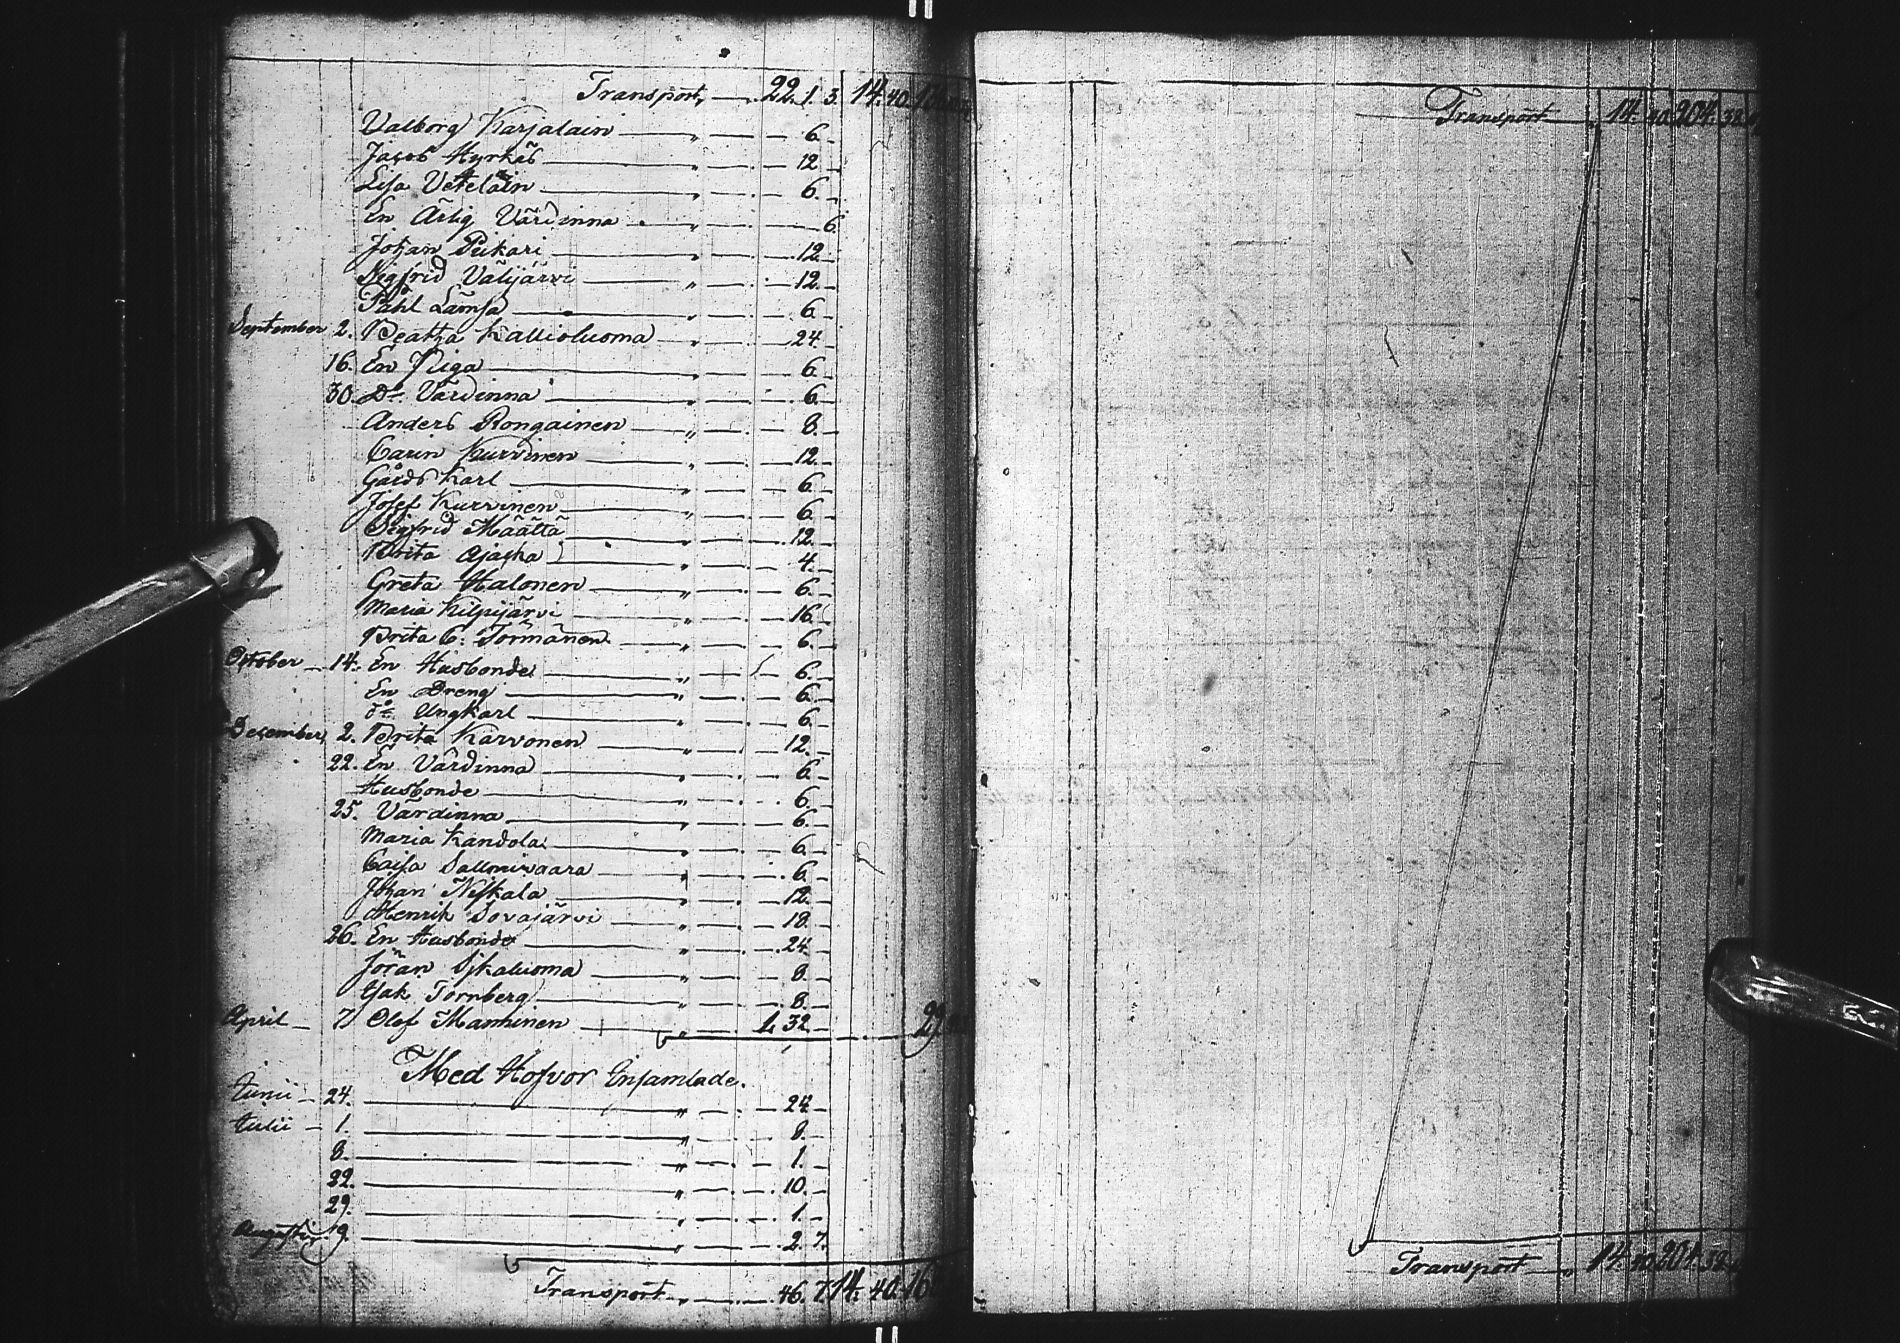 Transport 22. 1. 3. 14. 40.
Valborg Karjalain " 6.
Jacob Hyrkäs " 12
Lisa Vetelain " 6.
En Ärlig Värdinna " 6
Johan Pukari " 12
Sigfrid Välijärvi " 12.
Påhl Lämsa " 6.
September 2. Beatha Kallioluoma " 24.
16. En Piga " 6.
30. Do Värdinna " 6.
Anders Rongainen " 8.
Carin Kurvinen " 12.
Gårds Karl " 6.
Josef Kurvinen " 6.
Sigfrid Määttä " 12.
Brita " 4.
Greta Halonen " 6.
Maria Kilpijärvi " 16.
Brita C. Törmänen " 6.
October 14. En Husbonde " 6.
En Dreng " 6.
do Ungkarl " 6.
December 2. Brita Karvonen " 12.
22. En Värdinna " 6.
Husbonde " 6.
25. Värdinna " 6.
Maria Kandola " 6.
Caisa Sallmivaara " 6.
Johan Niskala " 12.
Henrik Sovajärvi " 18.
26. En Husbonde " 24.
Jöran " 8.
Isak Törnberg " 8.
April 7 Olof Manninen " 1. 32. 29
Med Hofvor Insamlade.
Junii 24. " 24
Julii 1. " 8.
8. " 1.
22. " 10.
29. " 1.
Augusti 19. " 2. 7.
Transport " 46. 7 14. 40. 16
Transport " 14. 40. 204. 32
Transport " 14. 40. 204. 32